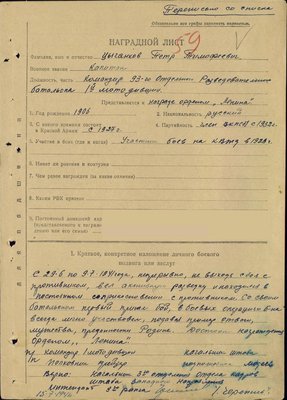 Переписано со списка
Обязательно все графы заполнить полностью
НАГРАДНОЙ ЛИСТ 59
Фамилия, имя и отчество Цыганков Петр Тимофеевич
Военное звание Капитан
Должность, часть Командир 93-го Отдельн. Разведывательн.
батальона 1й мотодивизии.
Представляется к награде ордену „Ленина“
1. Год рождения 1906 2. Национальность русский
3. С какого времени состоит
в Красной Армии с 1927г 4. Партийность член ВКП(б) с 1932г.
5. Участие в боях (где и когда) Участник боев на КВЖД в 1929г.
6. Имеет ли ранения и контузии
7. Чем ранее награжден (за какие отличия)
8. Каким РВК призван
9. Постоянный домашний адрес
(представляемого к награждению
или его семьи)
1. Краткое, конкретное изложение личного боевого
подвига или заслуг
С 29.6 по 9.7 1941года, непрерывно, не выходя с боя с
противником, вел активную разведку и находился в
постоянном соприкосновении с противником. Со своим
батальоном первый принял бой, в боевых операциях он
всегда лично участвовал, подавая пример отваги,
мужества, преданности Родине. Достоин награждения
орденом „Ленина“
пр командир 1 мотодивизии начальник штаба
полковник Крейзер
Верно: начальник отдела кадров
штаба западного направления
интендант 3го ранга
15.7.1941г.